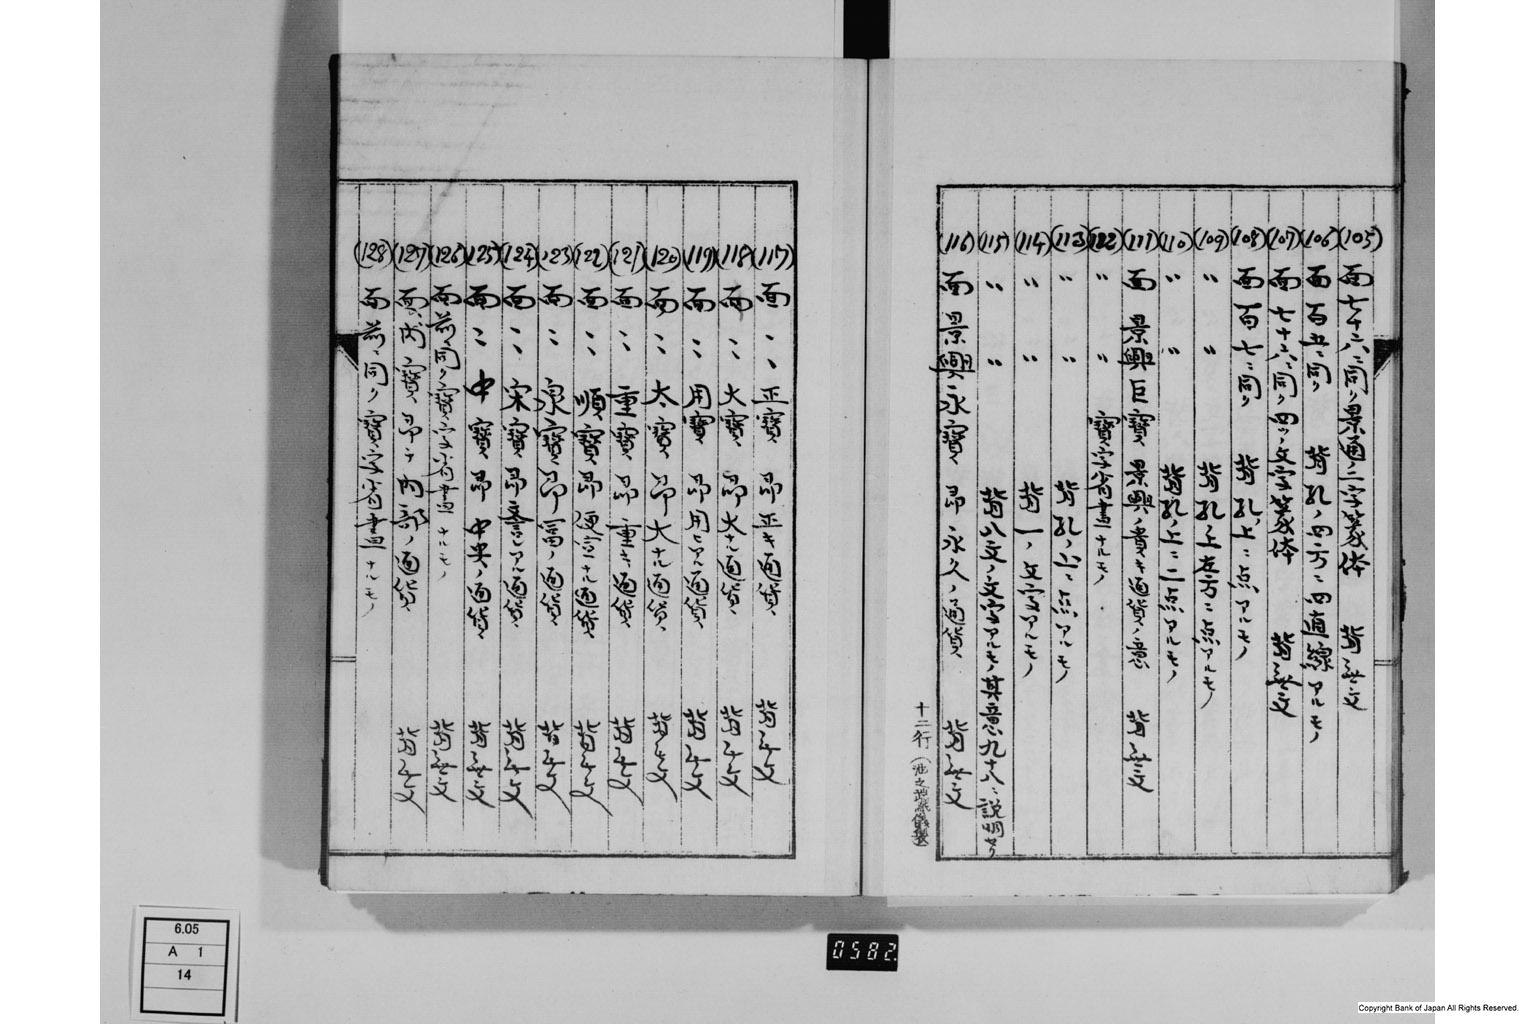 (105) 面 七十六ニ同ジ 景通ニ字篆体 背無文
(106) 面 百五ニ同ジ 背孔ノ四方ニ四直線アルモノ
(107) 面 七十六ニ同ジ 四ツノ文字篆体 背無文
(108) 面 百七ニ同ジ 背孔ノ上ニ点アルモノ
(109) 〃 〃 背孔ノ上左方ニ点アルモノ
(110) 〃 〃 背孔ノ上ニ二点アルモノ
(111) 面 景興巨寳 景興ノ貴キ通貨ノ意 背無文
(112) 〃 〃 寳字省書ナルモノ
(113) 〃 〃 背孔ノ上ニ点アルモノ
(114) 〃 〃 背一ノ文字アルモノ
(115) 〃 〃 背八文ノ文字アルモノ其意九十八ニ説明セリ
(116) 面 景興永寳 即永久ノ通貨 背無文
十二行
(117) 面 〻 正寳 即正キ通貨 背無文
(118) 面 〻 大寳 即大ナル通貨 背無文
(119) 面 〻 用寳 即用ヒル通貨 背無文
(120) 面 〻 太寳 即大ナル通貨 背無文
(121) 面 〻 重寳 即重キ通貨 背無文
(122) 面 〻 順寳 即便宜ナル通貨 背無文
(123) 面 〻 泉寳 即富ノ通貨 背無文
(124) 面 〻 宋寳 即 通貨 背無文
(125) 面 〻 中寳 即中央ノ通貨 背無文
(126) 面 前ニ同ジ 寳字省書ナルモノ 背無文
(127) 面 内寳 即チ内部ノ通貨 背無文
(128) 面 前ニ同ジ 寳字省書ナルモノ
6.05
A 1
14
0582
Copyright Bank of Japan All Rights Reserved.